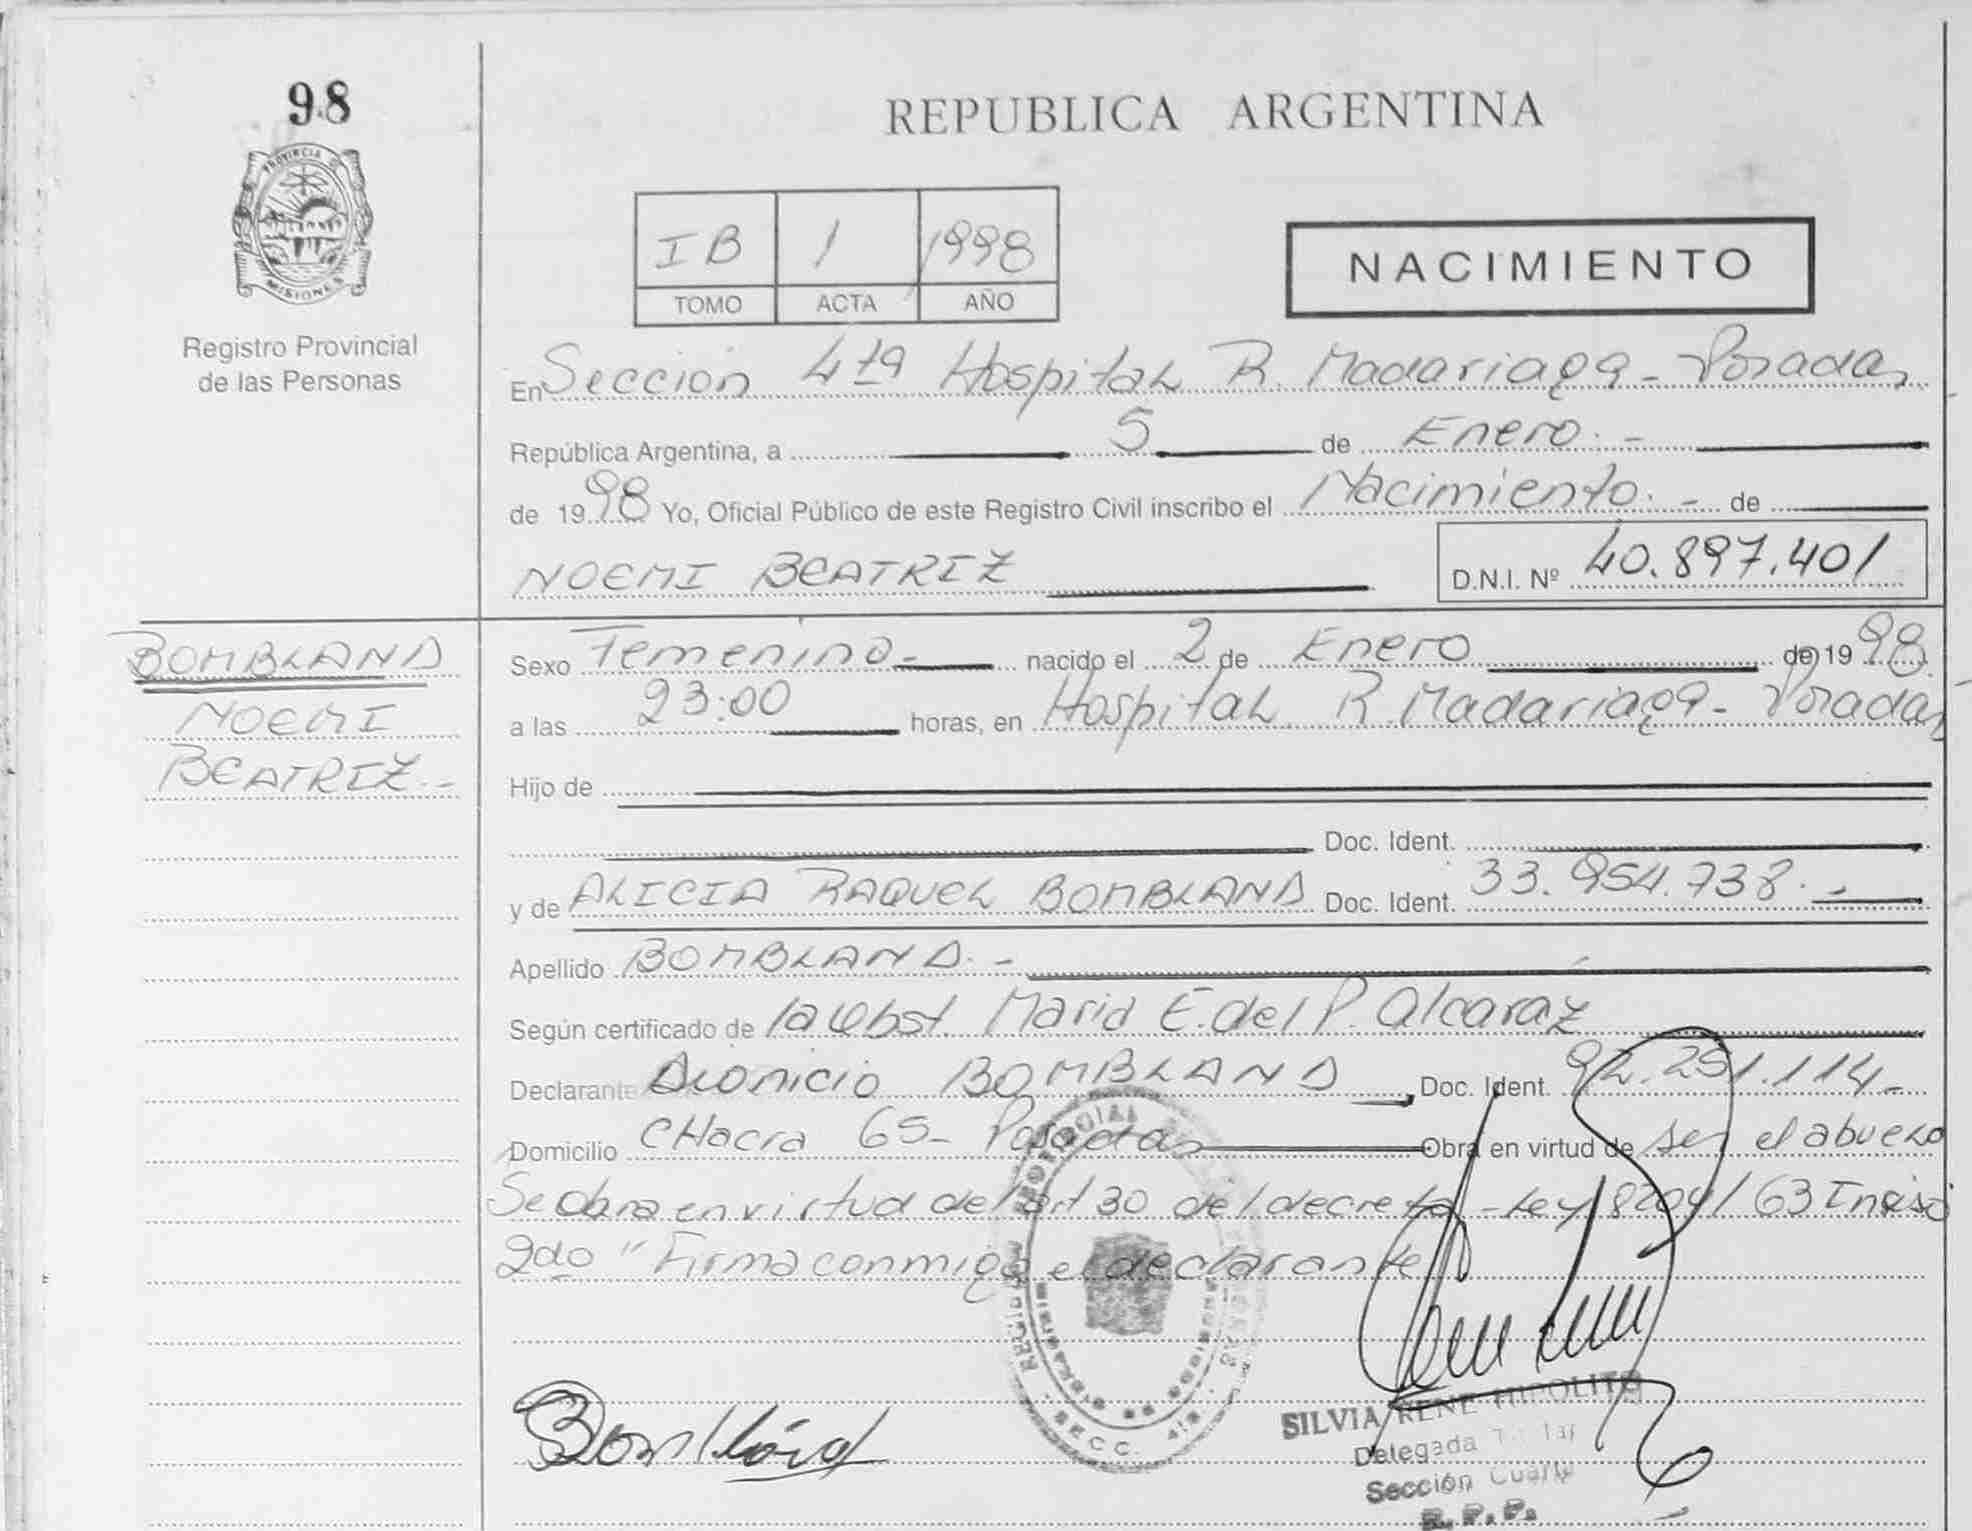 98
PROVINCIA DE
MISIONES
Registro Provincial
de las Personas
REPUBLICA ARGENTINA
IB 1 1998
TOMO ACTA AÑO
NACIMIENTO
En Sección 4ta Hospital R. Madariaga - Posadas
República Argentina, a 5 de Enero. -
de 1998 Yo, Oficial Público de este Registro Civil inscribo el Nacimiento. - de
NOEMI BEATRIZ D.N.I. Nº 40.897.401
BOMBLAND
NOEMI
BEATRIZ. -
Sexo Femenino - nacido el 2 de Enero de 1998.
a las 23:00 horas, en Hospital R. Madariaga - Posadas
Hijo de
Doc. Ident.
y de ALICIA RAQUEL BOMBLAND Doc. Ident. 33.954.738. -
Apellido BOMBLAND. -
Según certificado de la Obst. Maria E. del P. Alcaraz
Declarante Dionicio BOMBLAND Doc. Ident. 92.251.114 -
Domicilio CHacra 65 - Posadas Obra en virtud de ser el abuelo
Se obra en virtud del art 30 del decreto - Ley 8204/63 Inciso
2do " Firma conmigo el declarante
Bombland
SILVIA RENE HIPOLITO
Delegada Titular
Sección Cuarta
R. P. P.
SECC. 4ta